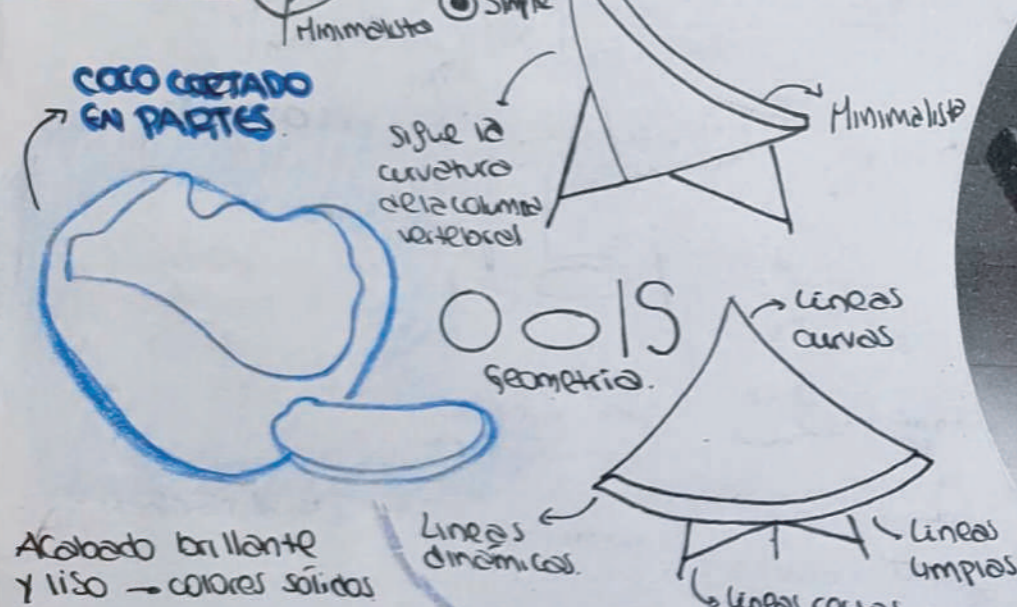 Minimalista
Simple
COCO CORTADO
EN PARTES.
Sigue la
curvatura
de la columna
vertebral
Minimalista
Geometría.
Líneas
curvas
Líneas
dinámicas.
Líneas
limpias
Líneas
Acabado brillante
y liso → colores sólidos